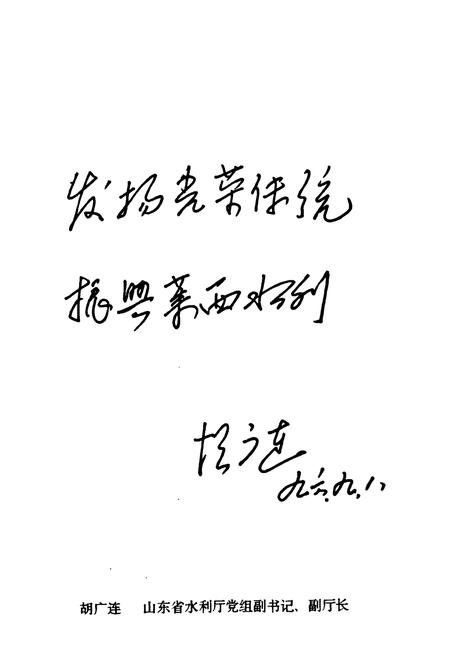 发扬光荣传统
振兴莱西水利
胡广连
九六.九.八
胡广连 山东省水利厅党组副书记、副厅长